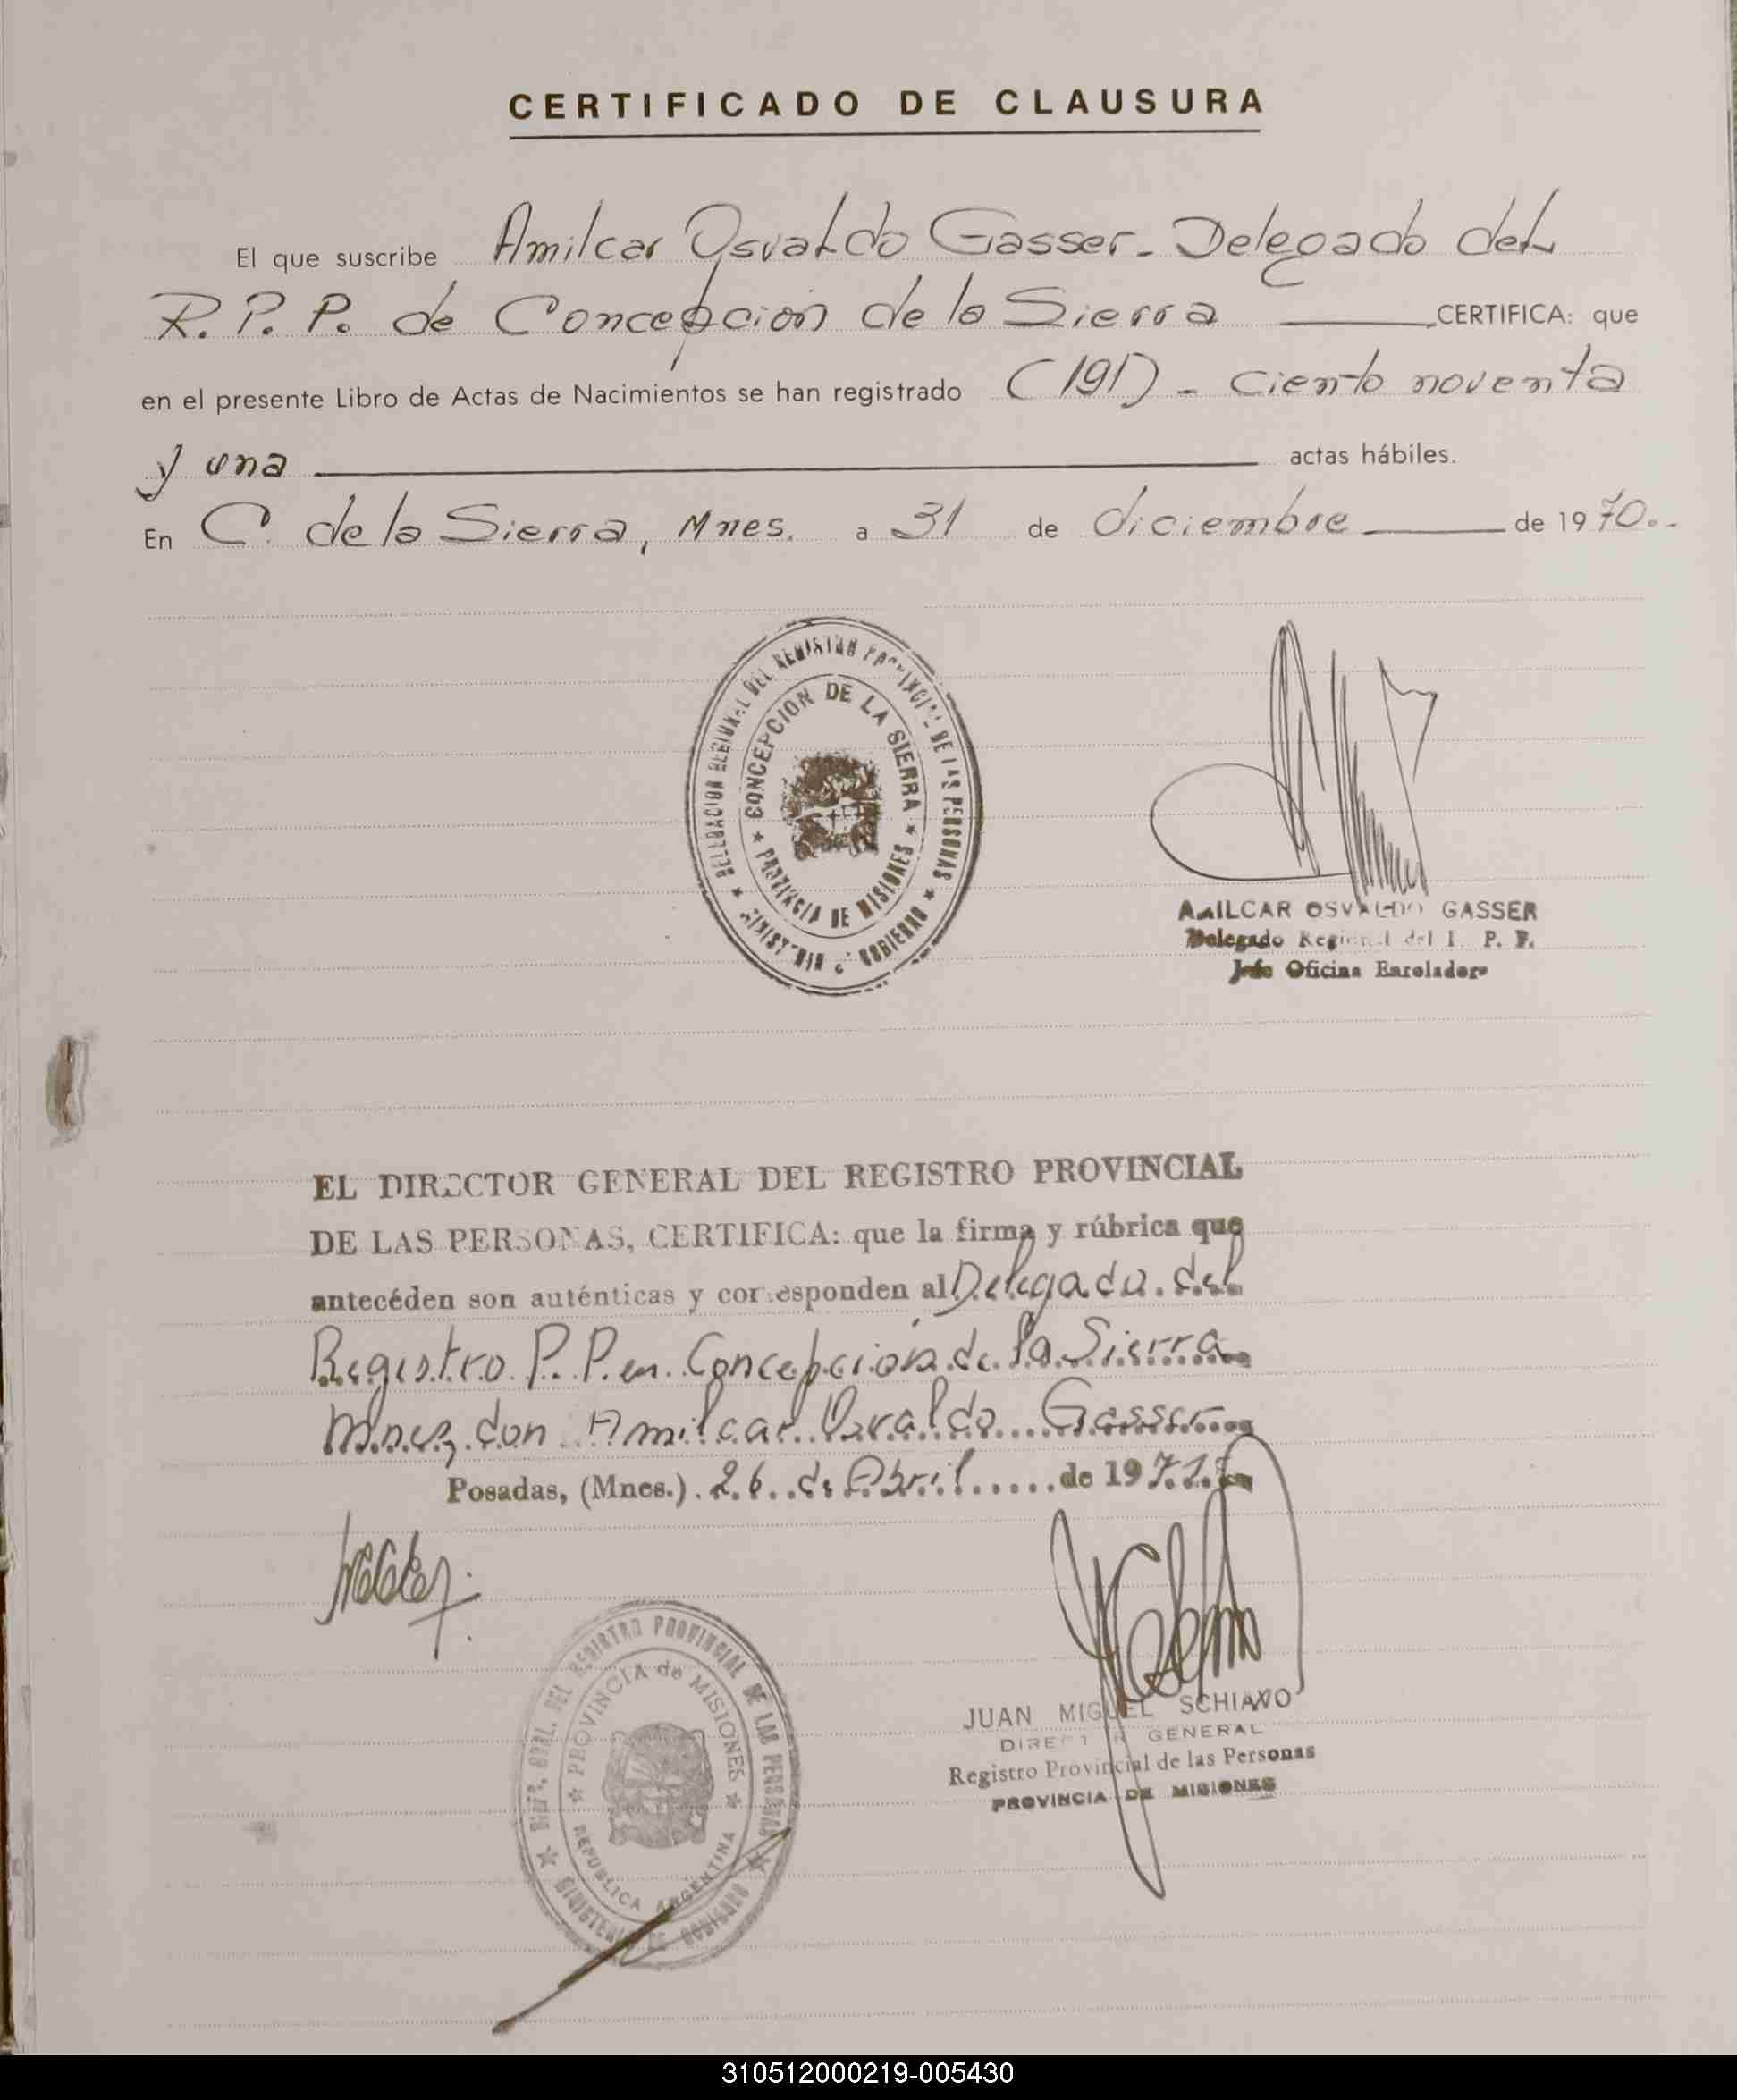 CERTIFICADO DE CLAUSURA
El que suscribe Amilcar Osvaldo Gasser - Delegado del
R. P. P. de Concepción de la Sierra CERTIFICA: que
en el presente Libro de Actas de Nacimientos se han registrado (191) - Ciento noventa
y una actas hábiles.
En C. de la Sierra, Mnes. a 31 de diciembre de 1970.-
DELEGACION REGIONAL DEL REGISTRO PROVINCIAL DE LAS PERSONAS
CONCEPCION DE LA SIERRA
PROVINCIA DE MISIONES
MINISTERIO GOBIERNO
AMILCAR OSVALDO GASSER
Delegado Regional del P. P.
Jefe Oficina Enroladora
EL DIRECTOR GENERAL DEL REGISTRO PROVINCIAL
DE LAS PERSONAS, CERTIFICA: que la firma y rúbrica que
antecéden son auténticas y corresponden al Delegado del
Registro P. P. en Concepción de la Sierra
Mnes, don Amilcar Osvaldo Gasser
Posadas, (Mnes.) 26 de Abril de 1971
DIR. GRAL. DEL REGISTRO PROVINCIAL DE LAS PERSONAS
PROVINCIA de MISIONES
REPUBLICA ARGENTINA
MINISTERIO DE GOBIERNO
JUAN MIGUEL SCHIAVO
DIRECTOR GENERAL
Registro Provincial de las Personas
PROVINCIA DE MISIONES
310512000219-005430